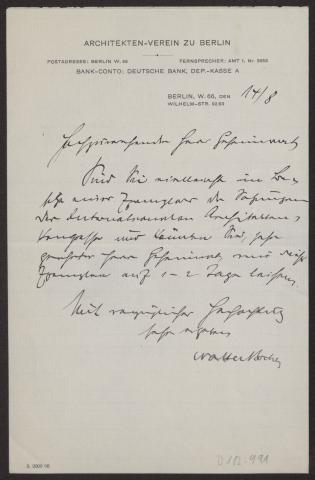 ARCHITEKTEN-VEREIN ZU BERLIN
POSTADRESSE: BERLIN W. 66 FERNSPRECHER: AMT I, Nr.
BANK-CONTO: DEUTSCHE BANK, DEP.-KASSE A
BERLIN, W. 66, DEN 14/8
WILHELM-STR. 92/93
Hochzuverehrender Herr Geheimrat
Sind Sie vielleicht im Be-
sitz eines Exemplares der Satzungen
der Internationalen Architekten-
Kongresse und könnten Sie, sehr
geehrter Herr Geheimrat, mir dieses
Exemplar auf 1-2 Tage leihen.
Mit vorzüglicher Hochachtung
sehr ergeben
Walter
D 112-991